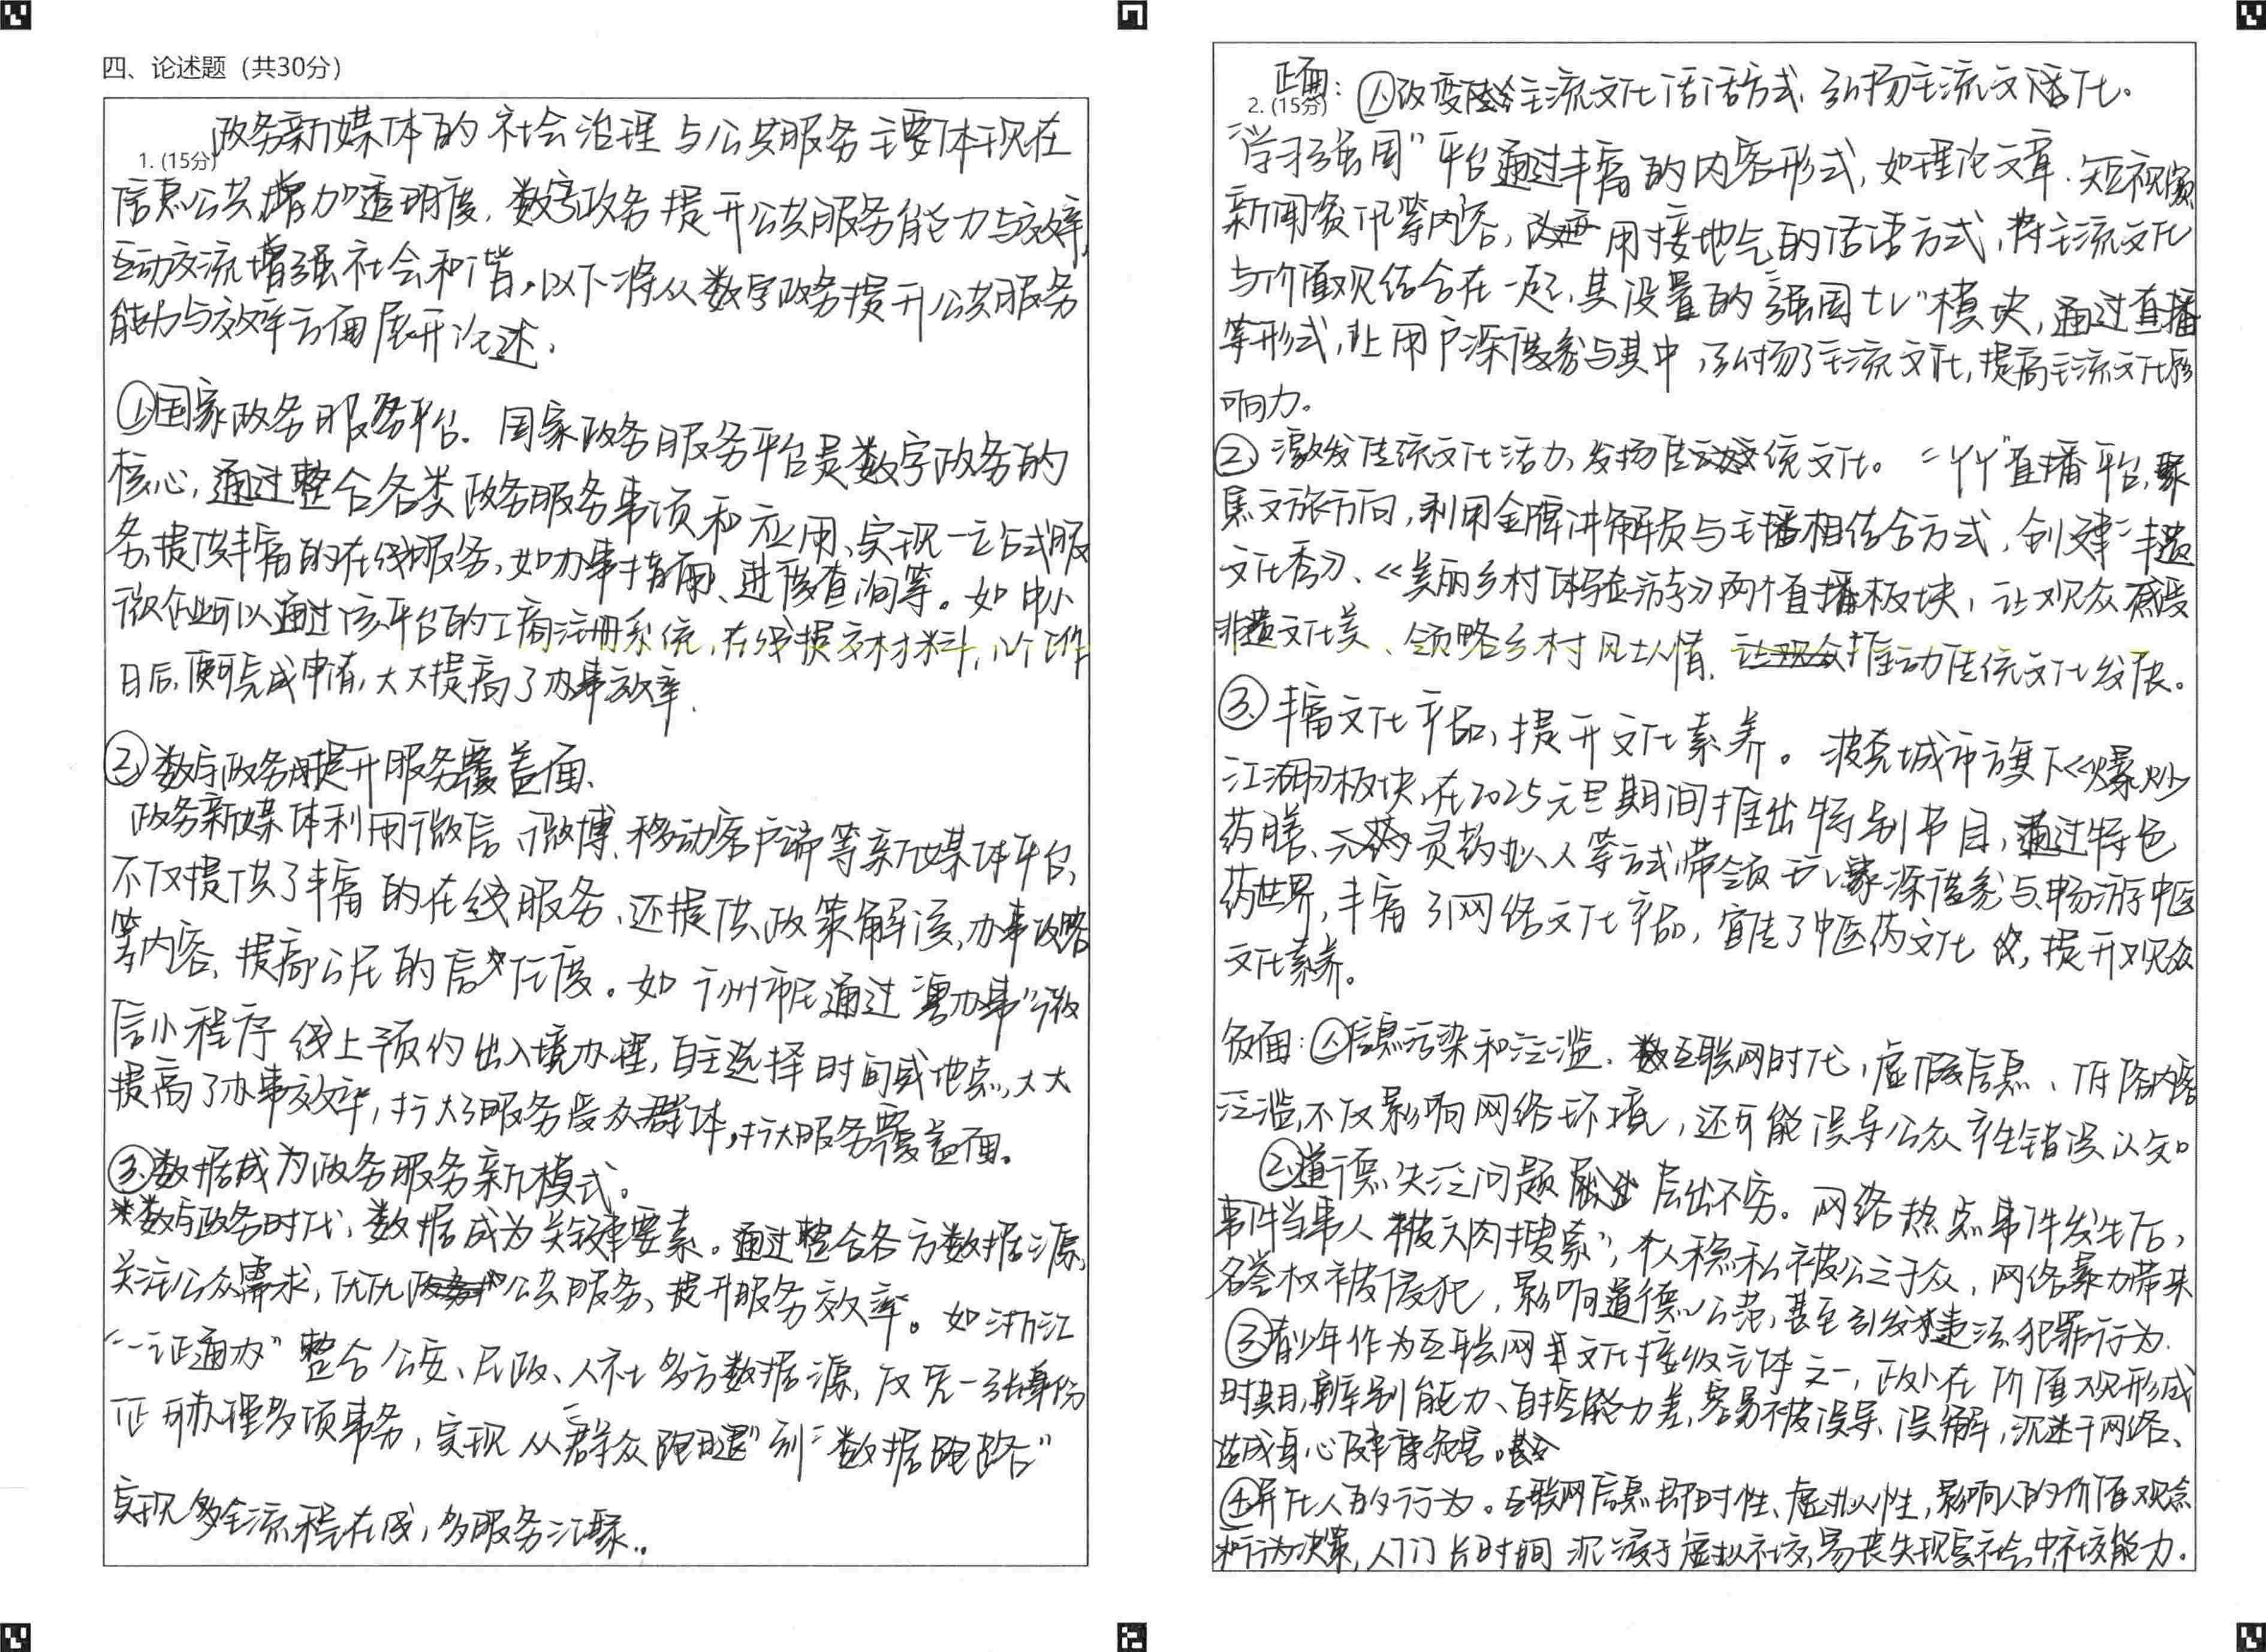 四、论述题（共30分）
1. (15分)
政务新媒体的社会治理与公共服务主要体现在
信息公共增加透明度，数字政务提升公共服务能力与效率，
互动交流增强社会和谐。以下将从数字政务提升公共服务
能力与效率方面展开论述，
①国家政务服务平台。国家政务服务平台是数字政务的
核心，通过整合各类政务服务事项和应用，实现一立台式服
务，提供丰富的在线服务，如办事指南、进度查询等。如中小
微企业可以通过该平台的工商注册系统，在线提交材料，几个工作
日后，便可完成申请，大大提高了办事效率.
②数字政务提升服务覆盖面.
政务新媒体利用微信、微博、移动客户端等新媒体平台，
不仅提供了丰富的在线服务，还提供政策解读，办事攻略
等内容，提高公民的信任度。如广州市民通过"粤办事"微
信小程序线上预约出入境办理，自主选择时间或地点，大大
提高了办事效率，扩大了服务受众群体，扩大服务覆盖面。
③数据成为政务服务新模式。
数字政务时代，数据成为关键要素。通过整合各方数据源，
关注公众需求，优化公共服务，提升服务效率。如浙江
"一证通办"整合公安、民政、人社多方数据源，仅凭一张身份
证可办理多项事务，实现从"群众跑腿"到"数据跑路"
实现多全流程在线，多服务汇聚..
2. (15分)
正面：①改变主流文化话语方式，弘扬主流文化。
"学习强国"平台通过丰富的内容形式，如理论文章、短视频
新闻资讯等内容，用接地气的话语方式，将主流文化
与价值观结合在一起，其设置的"强国tv"模块，通过直播
等形式，让用户深度参与其中，弘扬了主流文化，提高主流文化影
响力。
②激发传统文化活力，发扬传统文化。"YY"直播平台，聚
焦文旅方向，利用金牌讲解员与主播相结合方式，创建"非遗
文化秀》、《美丽乡村体验游》两个直播板块，让观众感受
非遗文化美、领略乡村风土人情，推动传统文化发展。
③丰富文化产品，提升文化素养。波克城市旗下《爆炒
江湖》板块，在2025元旦期间推出特别节目，通过特色
药膳、灵药拟人等方式带领玩家深度参与，畅游中医
药世界，丰富了网络文化产品，宣传了中医药文化，提升观众
文化素养。
负面：①信息污染和泛滥．互联网时代，虚假信息、低俗内容
泛滥，不仅影响网络环境，还可能误导公众产生错误认知
②道德失泛问题层出不穷。网络热点事件发生后，
事件当事人被"人肉搜索"，个人稳私被公之于众，网络暴力带来
名誉权被侵犯，影响道德公德，甚至引发违法犯罪行为．
③青少年作为互联网文化接收主体之一，正处在价值观形成
时期，辨别能力、自控能力差，容易被误导、误解，沉迷于网络、
造成身心健康危害。
④异化人的行为。互联网信息即时性、虚拟性，影响人的价值观念
和行为决策，人们长时间沉浸于虚拟社交，易丧失现实社会中社交能力．